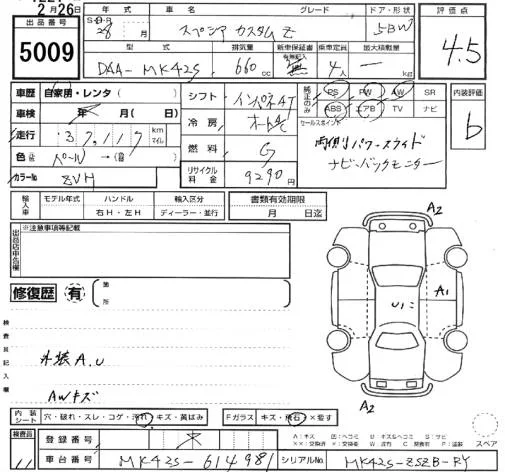 2月26日
出品番号
5009
年式 車名 グレード ドア・形状
28年 月 スペーシア カスタム Z 5BW
型式 排気量 新車保証書 有無記入 乗車定員 最大積載量
DAA-MK42S 660cc 無 4人 ー kg
評価点
4.5
車歴 自家用・レンタ( )
車検 年 月( 日)
走行 37,117 km マイル
色 パール→(替)
カラーNo ZVH
シフト インパネAT
冷房 オートAC
燃料 G
リサイクル料金 9290円
純正のみ PS PW AW SR
ABS エアB TV ナビ
セールスポイント
両側パワースライド
ナビ・バックモニター
内装評価
b
輸入車 モデル年式 ハンドル 輸入区分 書類有効期限
年 右H・左H ディーラー・並行 月 日迄
出品店申告欄 ※注意事項等記載
修復歴 有 箇所
検査員記入欄
外装A.U
AWキズ
A2
A1
U1
A2
内装シート 穴・破れ・スレ・コゲ・汚れ・キズ・黄ばみ Fガラス キズ・飛石・×要す
スペア
検査員 登録番号
車台番号 MK42S-614981 シリアルNo. MK42S-ZSZB-RY